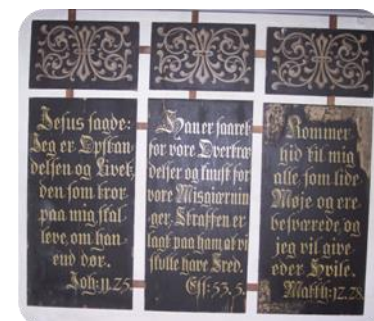 Jesus sagde:
Jeg er Opstan-
delsen og Livet,
den som troer
paa mig skal
leve, om han
end dør.
Joh: 11. 25.
Han er saaret
for vore Overtræ-
delser og knust for
vore Misgiernin-
ger. Straffen er
lagt paa ham at vi
skulle have Fred.
Esf: 53. 5.
Kommer
hid til mig
alle, som lide
Møje og ere
besværede, og
jeg vil give
eder Hvile.
Matth: 12. 28.